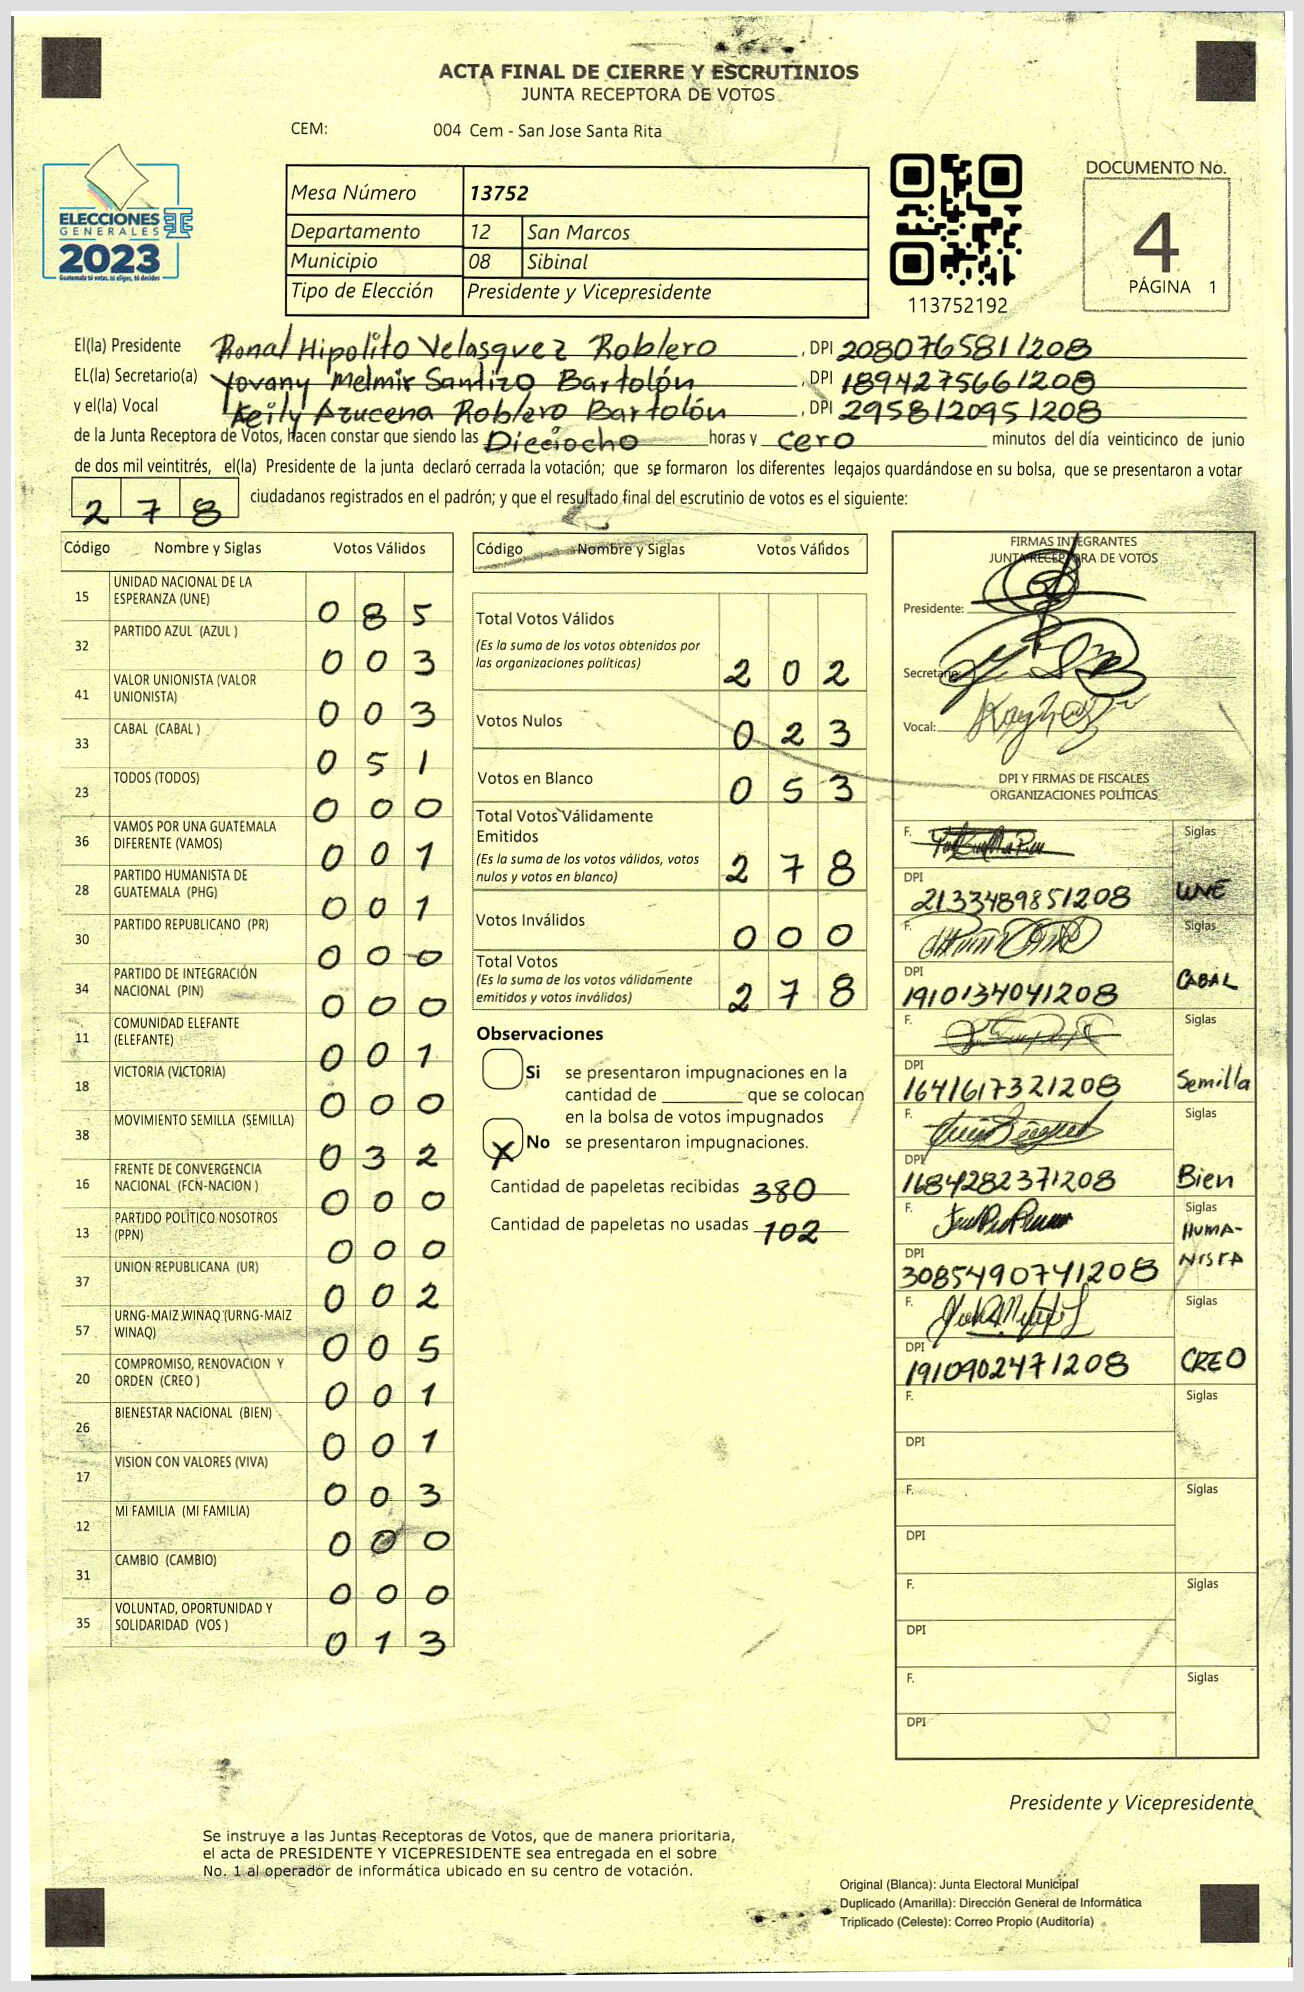 ACTA FINAL DE CIERRE Y ESCRUTINIOS
JUNTA RECEPTORA DE VOTOS
CEM: 004 Cem - San Jose Santa Rita
ELECCIONES
GENERALES
2023
Guatemala tú votas, tú eliges, tú decides
Mesa Número 13752
Departamento 12 San Marcos
Municipio 08 Sibinal
Tipo de Elección Presidente y Vicepresidente
113752192
DOCUMENTO No.
4
PÁGINA 1
El(la) Presidente Ronal Hipolito Velasquez Roblero , DPI 2080765811208
EL(la) Secretario(a) Yovany Melmir Santizo Bartolón , DPI 1894275661208
y el(la) Vocal Keily Azucena Roblero Bartolón , DPI 2958120951208
de la Junta Receptora de Votos, hacen constar que siendo las Dieciocho horas y cero minutos del día veinticinco de junio
de dos mil veintitrés, el(la) Presidente de la junta declaró cerrada la votación; que se formaron los diferentes legajos quardándose en su bolsa, que se presentaron a votar
278 ciudadanos registrados en el padrón; y que el resultado final del escrutinio de votos es el siguiente:
Código Nombre y Siglas Votos Válidos
15 UNIDAD NACIONAL DE LA ESPERANZA (UNE) 085
32 PARTIDO AZUL (AZUL ) 003
41 VALOR UNIONISTA (VALOR UNIONISTA) 003
33 CABAL (CABAL ) 051
23 TODOS (TODOS) 000
36 VAMOS POR UNA GUATEMALA DIFERENTE (VAMOS) 001
28 PARTIDO HUMANISTA DE GUATEMALA (PHG) 001
30 PARTIDO REPUBLICANO (PR) 000
34 PARTIDO DE INTEGRACIÓN NACIONAL (PIN) 000
11 COMUNIDAD ELEFANTE (ELEFANTE) 001
18 VICTORIA (VICTORIA) 000
38 MOVIMIENTO SEMILLA (SEMILLA) 032
16 FRENTE DE CONVERGENCIA NACIONAL (FCN-NACION ) 000
13 PARTIDO POLÍTICO NOSOTROS (PPN) 000
37 UNION REPUBLICANA (UR) 002
57 URNG-MAIZ WINAQ (URNG-MAIZ WINAQ) 005
20 COMPROMISO, RENOVACION Y ORDEN (CREO ) 001
26 BIENESTAR NACIONAL (BIEN) 001
17 VISION CON VALORES (VIVA) 003
12 MI FAMILIA (MI FAMILIA) 000
31 CAMBIO (CAMBIO) 000
35 VOLUNTAD, OPORTUNIDAD Y SOLIDARIDAD (VOS ) 013
Código Nombre y Siglas Votos Válidos
Total Votos Válidos
(Es la suma de los votos obtenidos por
las organizaciones políticas) 202
Votos Nulos 023
Votos en Blanco 053
Total Votos Válidamente
Emitidos
(Es la suma de los votos válidos, votos
nulos y votos en blanco) 278
Votos Inválidos 000
Total Votos
(Es la suma de los votos válidamente
emitidos y votos inválidos) 278
Observaciones
Si se presentaron impugnaciones en la
cantidad de ________ que se colocan
en la bolsa de votos impugnados
X No se presentaron impugnaciones.
Cantidad de papeletas recibidas 380
Cantidad de papeletas no usadas 102
FIRMAS INTEGRANTES
JUNTA RECEPTORA DE VOTOS
Presidente:
Secretario:
Vocal:
DPI Y FIRMAS DE FISCALES
ORGANIZACIONES POLÍTICAS
F. Siglas
DPI 2133489851208 UNE
F. Siglas
DPI 1910134041208 CABAL
F. Siglas
DPI 1641617321208 Semilla
F. Siglas
DPI 1684282371208 Bien
F. Siglas
DPI 3085490741208 HUMA-
NISTA
F. Siglas
DPI 1910902471208 CREO
F. Siglas
DPI
F. Siglas
DPI
F. Siglas
DPI
F. Siglas
DPI
Presidente y Vicepresidente
Se instruye a las Juntas Receptoras de Votos, que de manera prioritaria,
el acta de PRESIDENTE Y VICEPRESIDENTE sea entregada en el sobre
No. 1 al operador de informática ubicado en su centro de votación.
Original (Blanca): Junta Electoral Municipal
Duplicado (Amarilla): Dirección General de Informática
Triplicado (Celeste): Correo Propio (Auditoría)